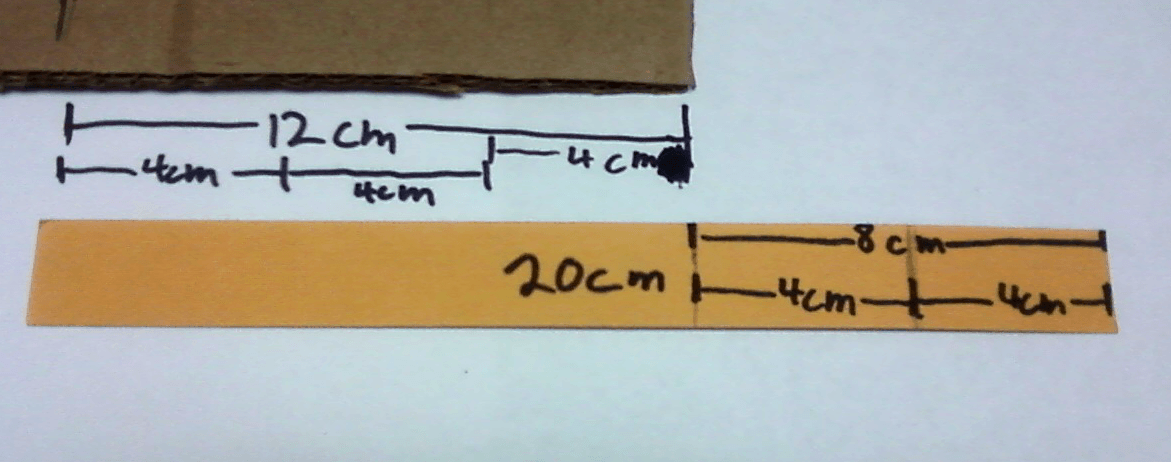 12 cm
4cm 4cm 4 cm
20cm
8 cm
4cm 4cm